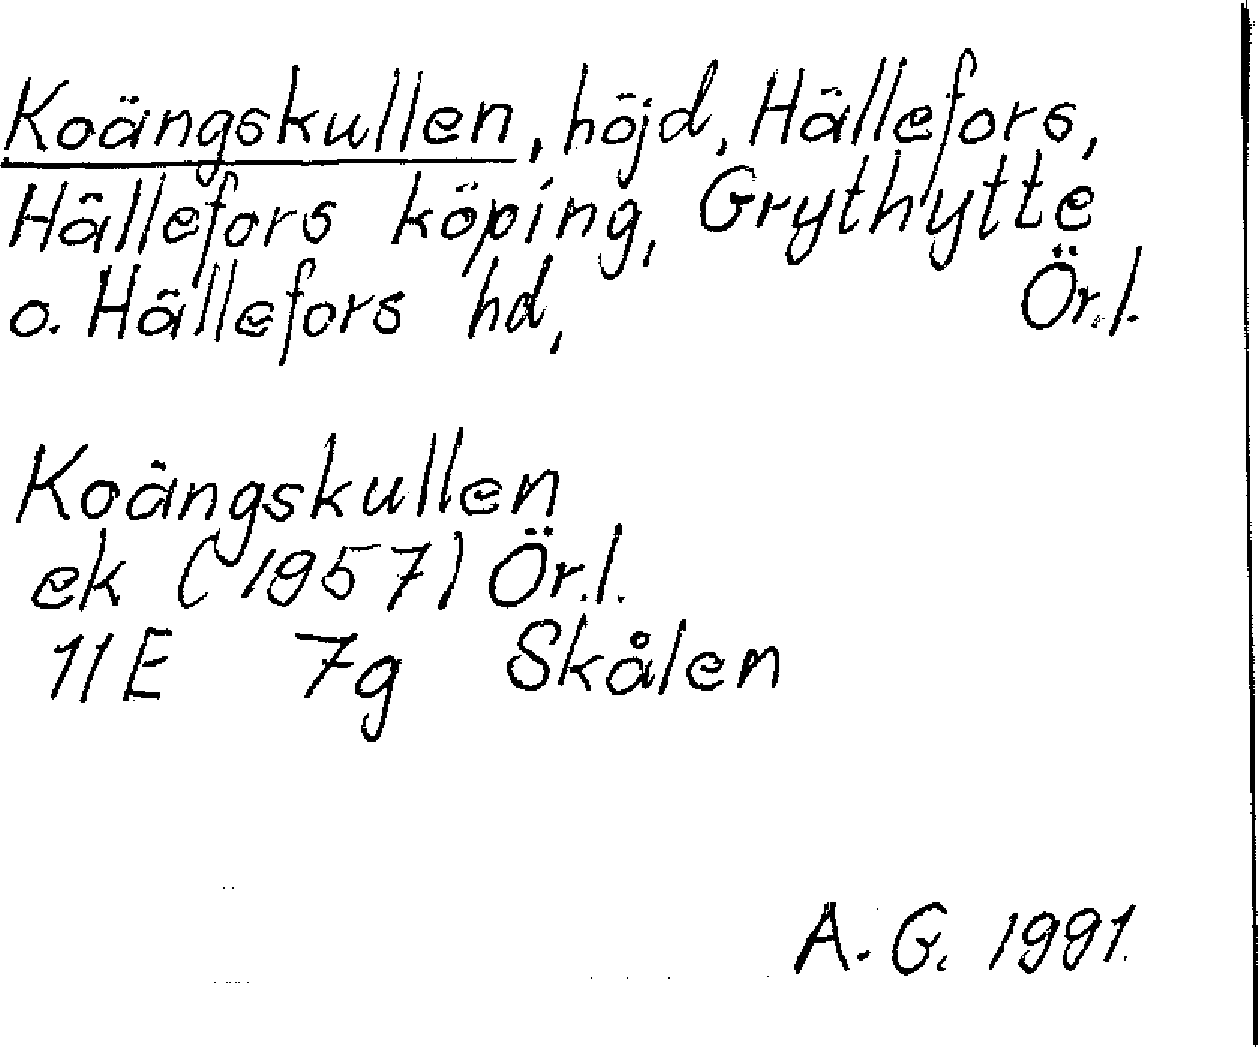 Koängskullen, höjd, Hällefors,
Hällefors köping, Grythytte
o. Hällefors hd, Ör.l.
Koängskullen
ek (1957) Ör.l.
11E 7g Skålen
A.G. 1991.